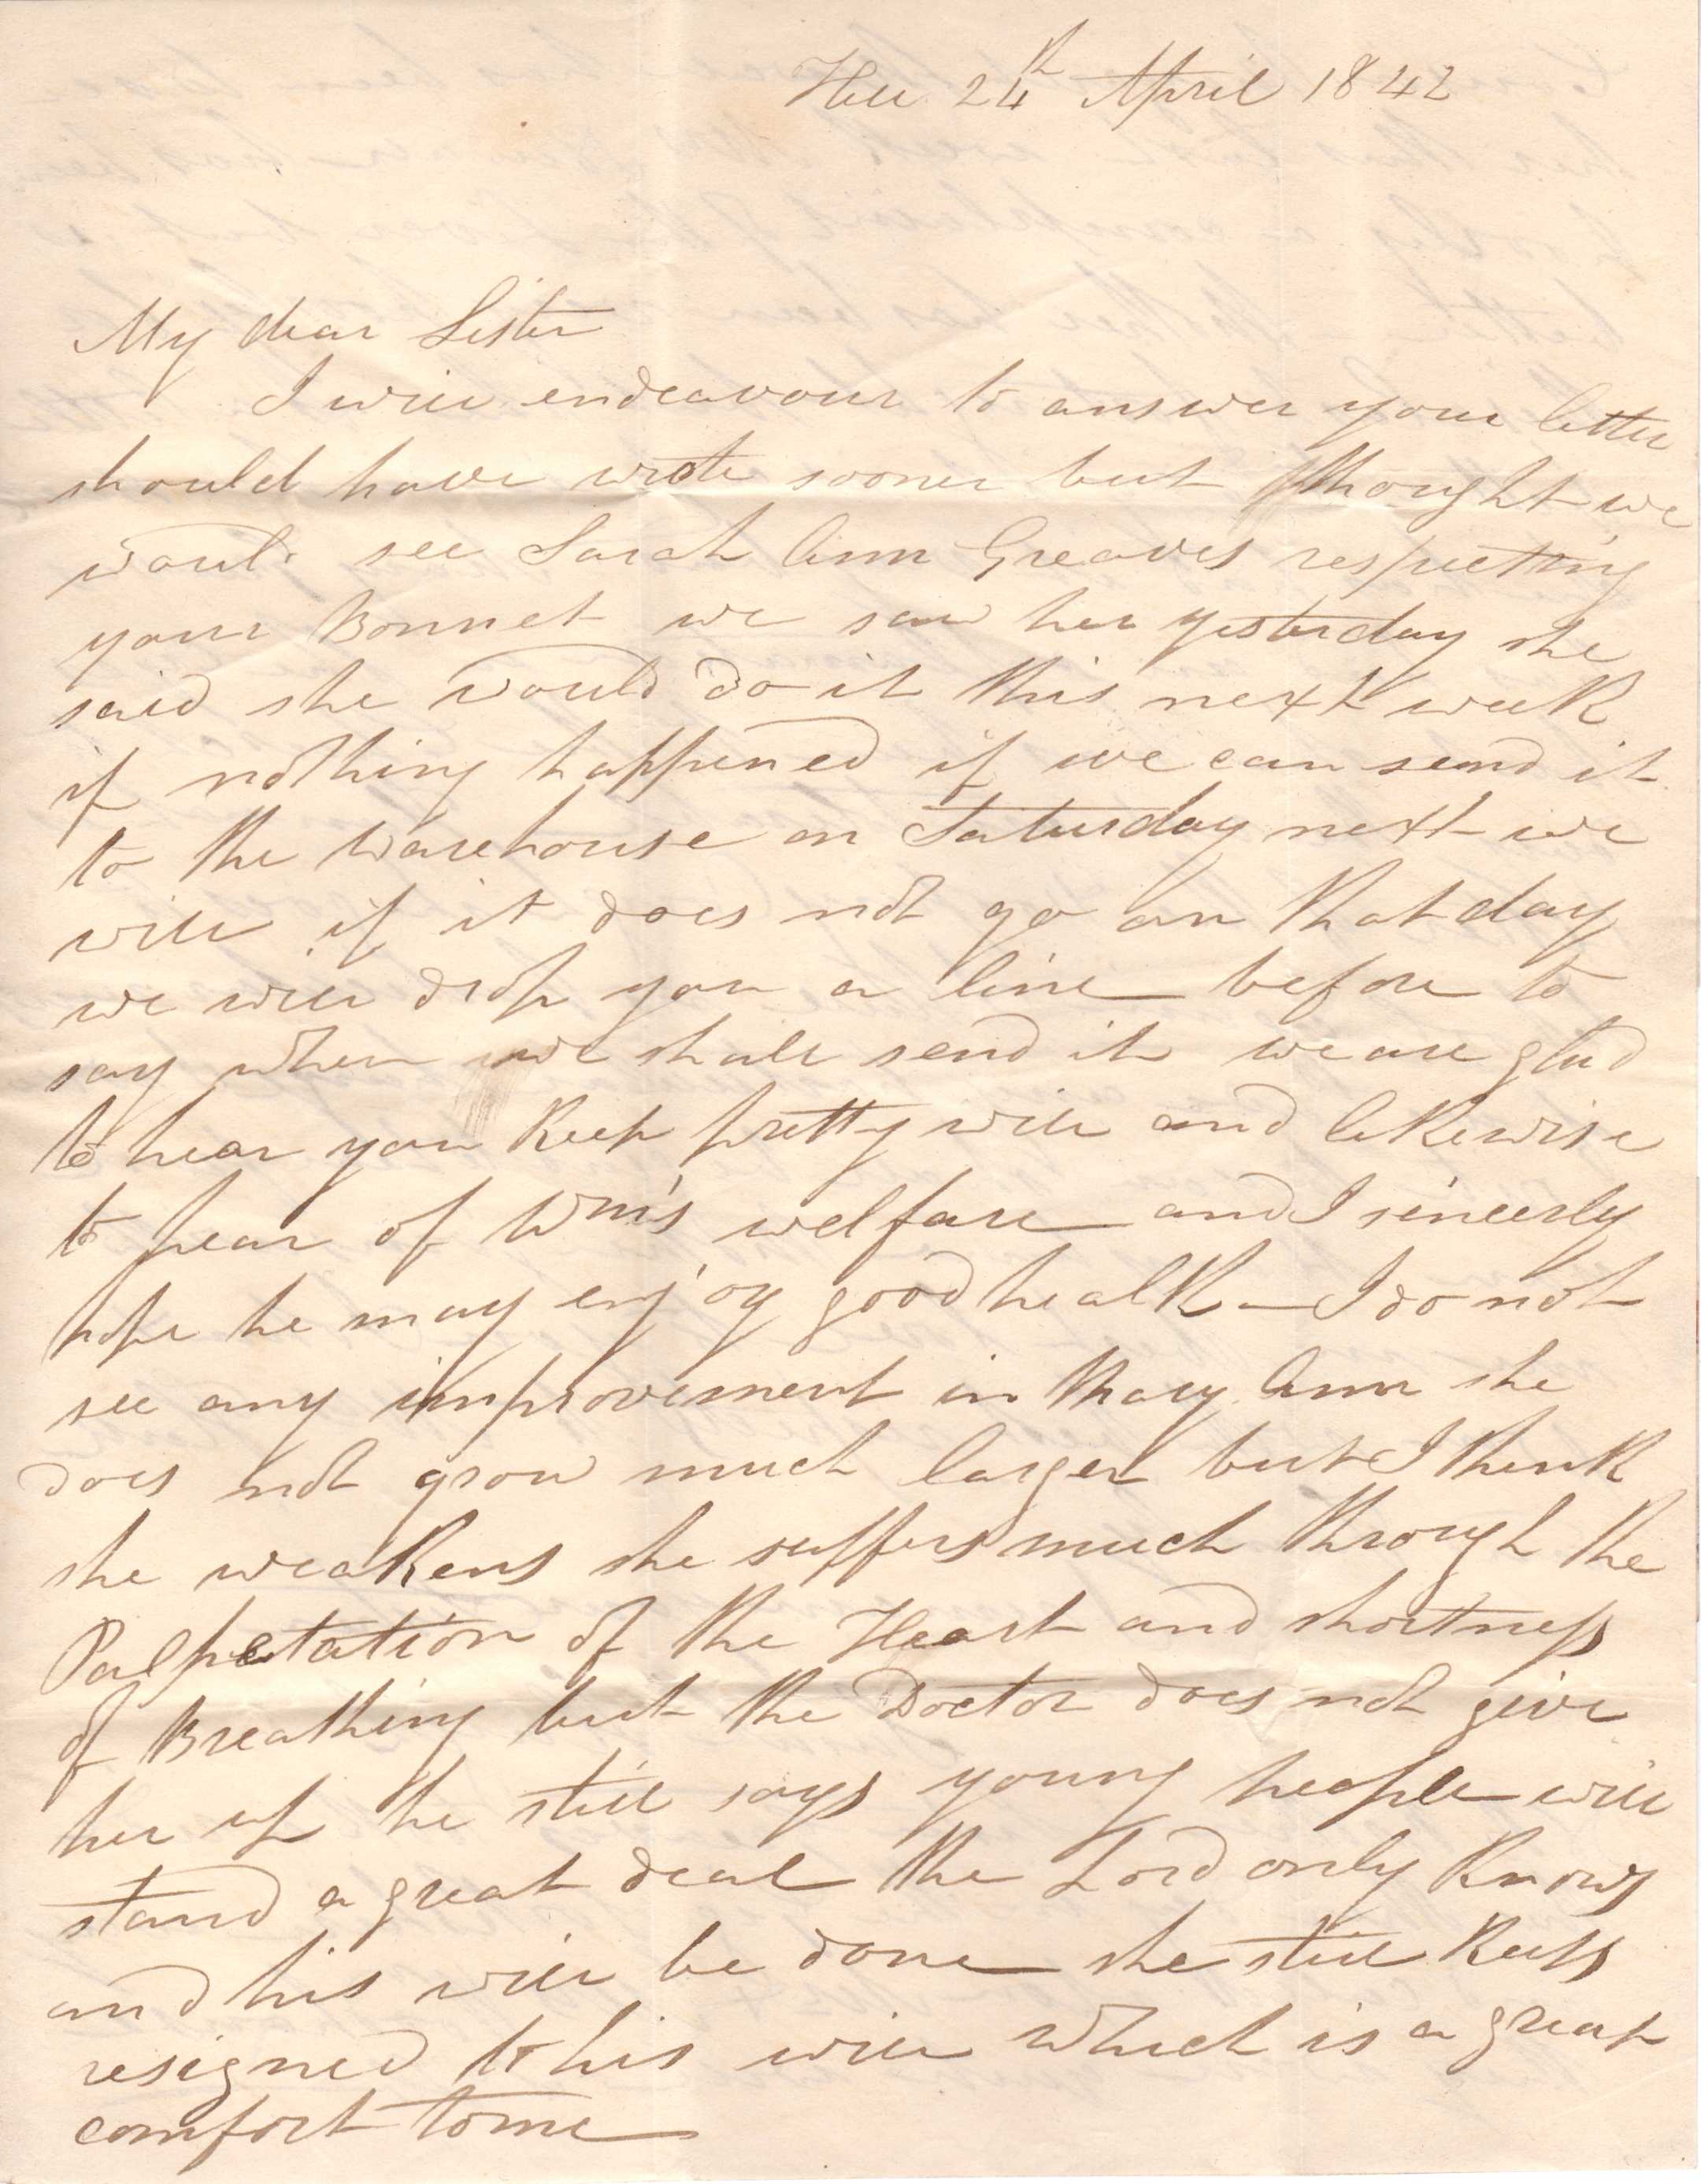 Hill 24th April 1842
My dear Sister
I will endeavour to answer your letter
should have wrote sooner but thought we
would see Sarah Ann Greaves respecting
your Bonnet we saw her yesterday she
said she would do it this next week
if nothing happened if we can send it
to the Warehouse on Saturday next we
will if it does not go on that day
we will drop you a line before to
say when we shall send it we are glad
to hear you keep pretty well and likewise
to hear of Wm's welfare and I sincerly
hope he may enjoy good health - I do not
see any improvement in Mary Ann she
does not grow much larger but I think
she weakens she suffers much through the
Palpetation of the Heart and shortness
of Breathing but the Doctor does not give
her up he still says young people will
stand a great deal the Lord only knows
and his will be done she still keeps
resigned to his will which is a great
comfort to me